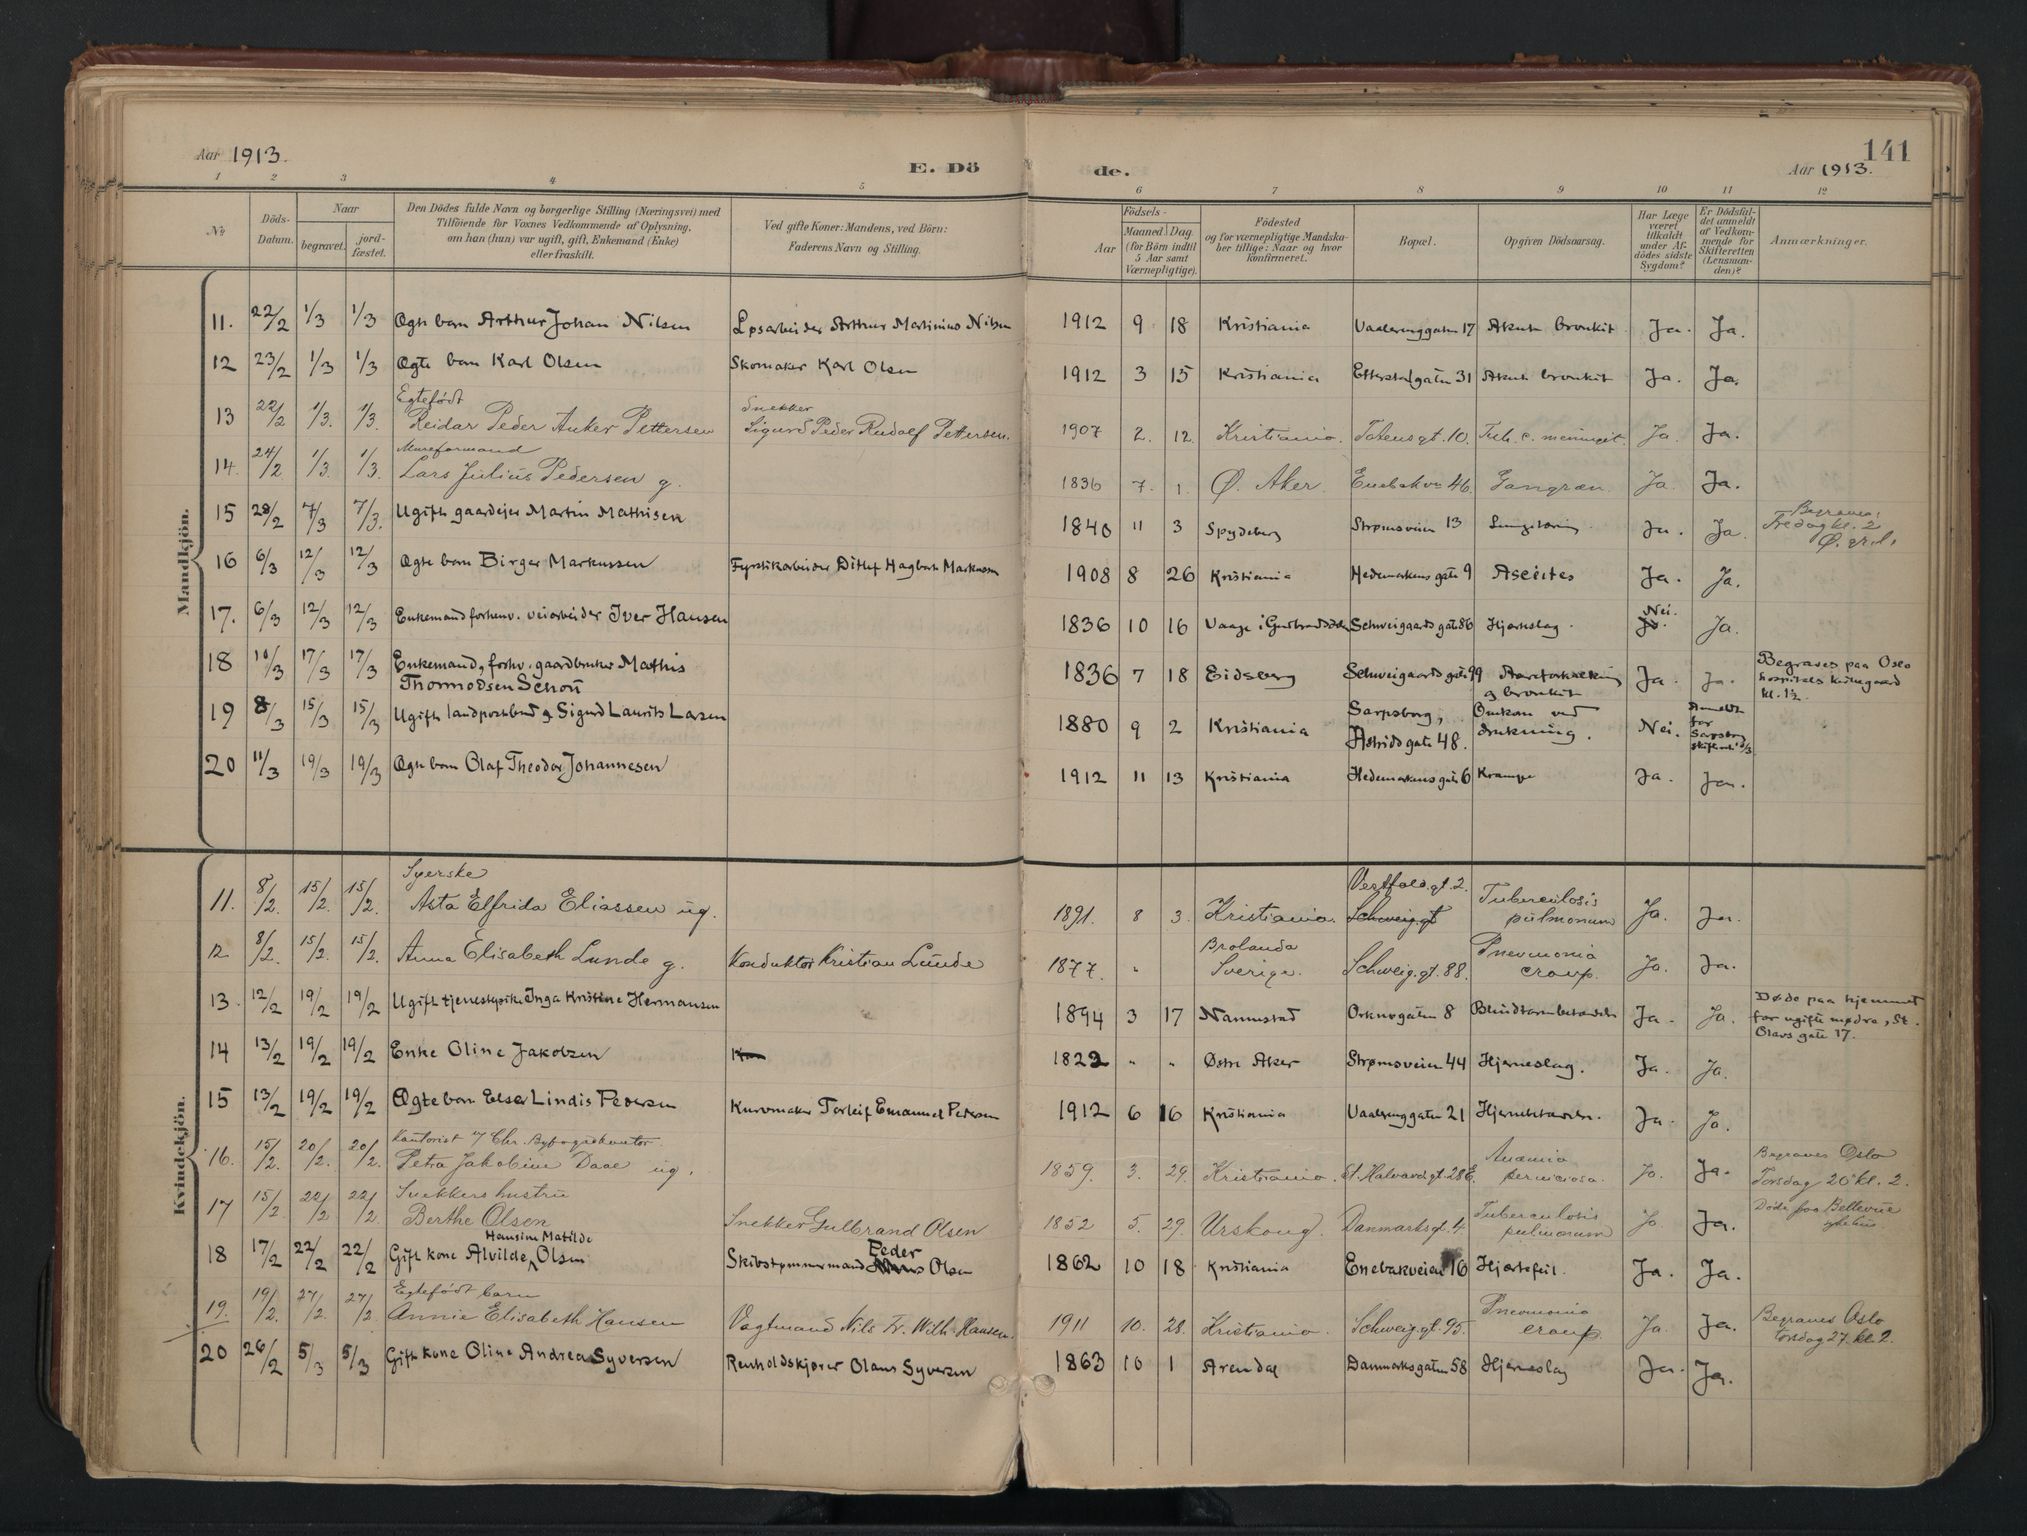 Aar 1913.
E. Dö
de.
141
Aar 1913.
1 2 3 4 5 6 7 8 9 10 11 12
No
Döds-Datum.
Naar
begravet.
jord-fæstet.
Den Dödes fulde Navn og borgerlige Stilling (Næringsvei) med
Tilföiende for Voxnes Vedkommende af Oplysning,
om han (hun) var ugift, gift, Enkemand (Enke)
eller fraskilt.
Ved gifte Koner: Mandens, ved Börn:
Faderens Navn og Stilling.
Födsels-
Aar
Maaned. Dag.
(for Börn indtil
5 Aar samt
Værnepligtige).
Födested
og for værnepligtige Mandska-
ber tillige: Naar og hvor
konfirmeret.
Bopæl.
Opgiven Dödsaarsag.
Har Læge
været
tilkaldt
under Af-
dödes sidste
Sygdom?
Er Dödsfal-
det anmeldt
af Vedkom-
mende for
Skifteretten
(Lensman-
den)?
Anmærkninger.
Mandkjön.
11. 22/2 1/3 1/3 Ægte barn Arthur Johan Nilsen Løsarbeider Arthur Martinius Nilsen 1912 9 18 Kristiania Vaalerenggaten 17 Akut bronkit Ja. Ja.
12 23/2 1/3 1/3 Ægte barn Karl Olsen Skomaker Karl Olsen 1912 3 15 Kristiania Etterstadgaten 31 Akut bronkit Ja. Ja.
Egtefödt Snekker
13 22/2 1/3. 1/3. Reidar Peder Anker Pettersen Sigurd Peder Rudolf Pettersen. 1907 2. 12. Kristiania. Totensgt. 10. Tub. c. meningit. Ja. Ja.
Mureformand
14. 24/2 1/3. 1/3. Lars Julius Pedersen g. 1836 7. 1. Ø. Aker. Enebakv. 46. Gangræn. Ja. Ja.
15 28/2 7/3 7/3. Ugift gaardeier Martin Mathisen 1840 11 3 Spydeberg Strømsveien 13 Ja. Ja. Begraves
Fredag kl. 2
16 6/3 12/3 12/3 Ægte barn Birger Markussen Fyrstikarbeider Ditlef Hagbart Markussen 1908 8 26 Kristiania Hedemarkens gate 9 Ascites Ja. Ja.
17. 6/3 12/3 12/3 Enkemand forhenv. veiarbeider Iver Hansen 1836 10 16 Vaage i Gudbrandsdalen Schweigaards gate 86 Hjerteslag. Nei. Ja.
18 10/3 17/3 17/3 Enkemand, forhv. gaardbruker Mathis
Thormodsen Schou 1836 7 18 Eidsberg Schweigaards gate 99 Aareforkalkning
og bronkit Ja. Ja. Begraves paa Oslo
hospitals kirkegaard
kl. 1½
19 8/3 15/3 15/3 Ugift landpostbud Sigurd Laurits Larsen 1880 9 2 Kristiania Sarpsborg,
Astrids gate 48. Omkom ved
drukning. Nei. Anmeldt
for
Sarpsborg
skifteret
20 11/3 19/3 19/3 Ægte barn Olaf Theodor Johannesen 1912 11 13 Kristiania Hedemarkens gate 6 Krampe Ja. Ja.
Kvindekjön.
Syerske
11. 8/2. 15/2. 15/2. Asta Elfrida Eliassen ug. 1891. 8 3. Kristiania. Vestfold.gt. 2.
Schweig.gt Tuberculosis
pulmonum Ja. Ja.
12. 8/2. 15/2. 15/2. Anna Elisabeth Lunde g. Konduktör Kristian Lunde 1877. " Brolanda
Sverige. Schweig.gt. 88. Pneumonia
croup. Ja. Ja.
13. 12/2 19/2 19/2 Ugift tjenestepike Inga Kristine Hermansen 1894 3 17 Nannestad Orknøgaten 8 Blindtarmbetændelse Ja. Ja. Døde paa hjemmet
for ugifte mødre, St.
Olavs gate 17.
14 13/2 19/2 19/2 Enke Oline Jakobsen 1822 " " Østre Aker Strømsveien 44 Hjerneslag. Ja. Ja.
15 13/2 19/2 19/2 Ægte barn Elsa Lindis Pedersen Kurvmaker Torleif Emanuel Pedersen 1912 6 16 Kristiania Vaalerenggaten 21 Hjernebetændelse. Ja. Ja.
Kontorist v/ Chr. Byfogdkontor.
16. 15/2. 20/2. 20/2. Petra Jakobine Daae ug. 1859. 3. 29. Kristiania. St. Halvard.gt. 28 E. Anæmia
perniciosa. Ja. Ja. Begraves Oslo
Torsdag 20 kl. 2.
Snekkers hustru
17 15/2. 22/2 22/2. Berthe Olsen Snekker Gulbrand Olsen 1852 5. 29. Urskoug. Danmarksgt. 4. Tuberculosis
pulmonum Ja. Ja. Döde paa Bellevue
sykehus.
Hansine Matilde
18 17/2 22/2 22/2 Gift kone Alvilde Olsen Skibstømmermand Peder Olsen 1862 10 18 Kristiania Enebakveien 16 Hjertefeil. Ja. Ja.
Egtefödt barn
19. 19/2. 27/2. 27/2 Annie Elisabeth Hansen Vagtmand Nils Fr. Wilh. Hansen. 1911 10. 28. Kristiania. Schweig.gt. 95. Pneumonia
croup. Ja. Ja. Begraves Oslo
torsdag 27. kl. 2.
20 26/2 5/3 5/3 Gift kone Oline Andrea Syversen Renholdskjører Olaus Syversen 1863 10 1 Arendal Danmarksgaten 58 Hjerneslag Ja. Ja.